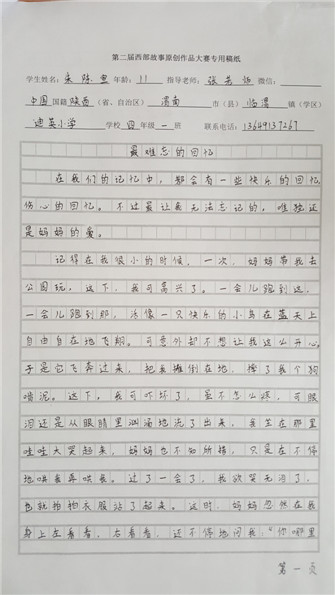 第二届西部故事原创作品大赛专用稿纸
学生姓名:朱陈 年龄:11 指导老师:张芳 微信:
中国国籍陕西(省、自治区) 渭南 市(县) 临渭 镇(学区)
迪英小学 学校 四年级 一班 联系电话:13649137267
最难忘的回忆
在我们的记忆中,都会有一些快乐的回忆,
伤心的回忆。不过最让我无法忘记的,唯独还
是妈妈的爱。
记得在我很小的时候,一次,妈妈带我去
公园玩,这下,我可高兴了。一会儿跑到这,
一会儿跑到那,活像一只快乐的小鸟在蓝天上
自由自在地飞翔。可意外却不想让我这么开心,
于是它飞奔过来,把我摊倒在地,摔了我个狗
啃泥。这下,我可吓坏了,虽不怎么疼,可眼
泪还是从眼睛里汹涌地流了出来,我坐在那里
哇哇大哭起来,妈妈也不知所措,只是在不停
地哄我再哄我。过了一会了,我欲哭无泪了,
也就拍拍衣服站了起来。这时,妈妈忽然在我
身上左看看,右看看,还不停地问我:“你哪里
第一页